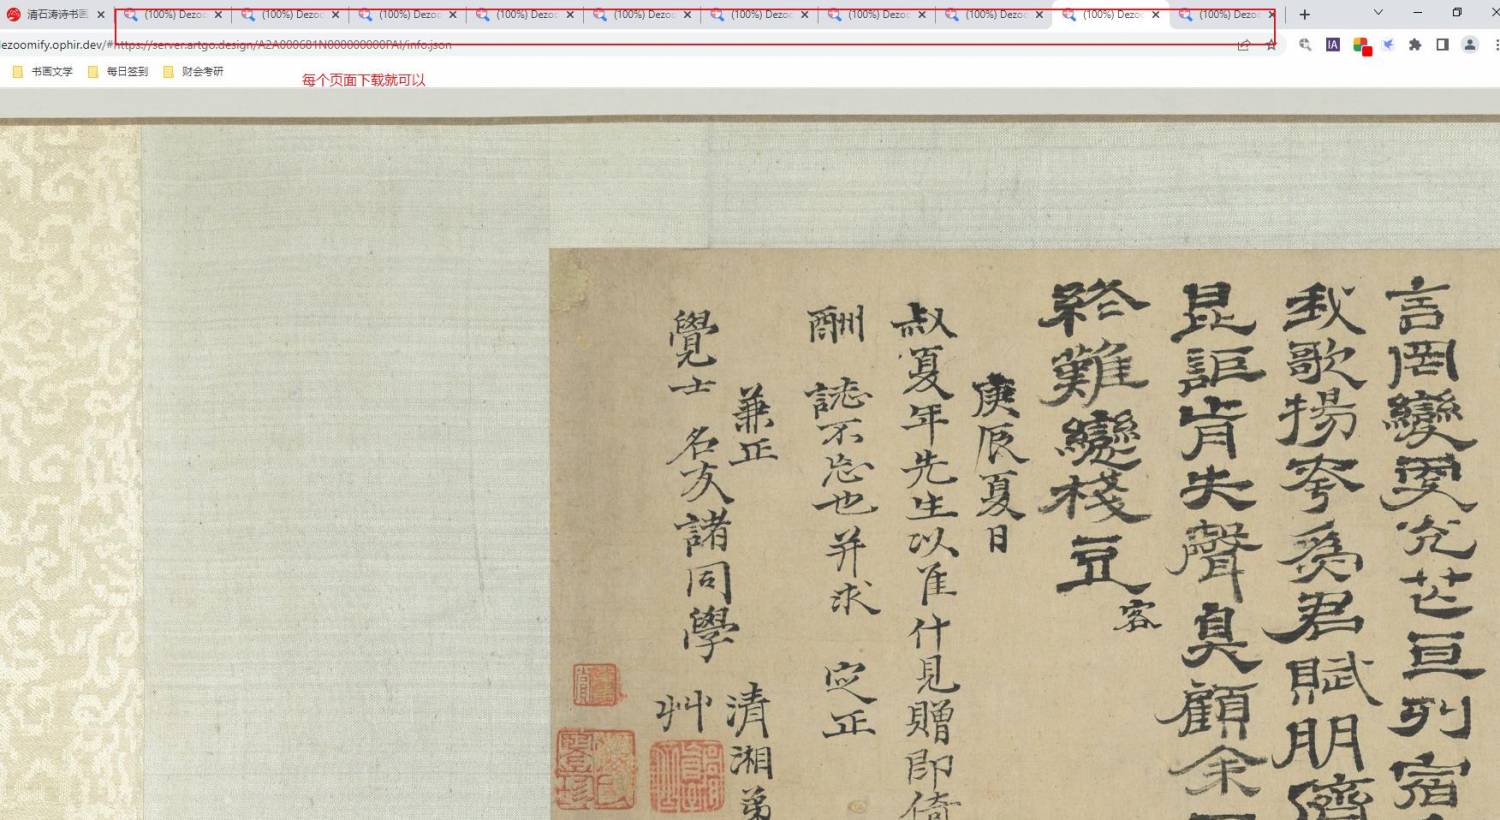 清石涛诗书画
(100%) Dezoo
(100%) Dezoo
(100%) Dezoo
(100%) Dezoo
(100%) Dezoo
(100%) Dezoo
(100%) Dezoo
(100%) Dezoo
(100%) Dezoo
(100%) Dezoo
ezoomify.ophir.dev/#https://server.artgo.design/A2A000681N000000000PAI/info.json
IA
书画文学
每日签到
财会考研
每个页面下载就可以
言罔變更允芒亘列宿
我歌揚夸爲君賦朋濟
昆詎肯失聲臭顧余
終難變棧豆客
庚辰夏日
叔夏年先生以佳什見贈即倚
酬誌不忘也并求定正
兼正
覺士名友諸同學
清湘弟
艸